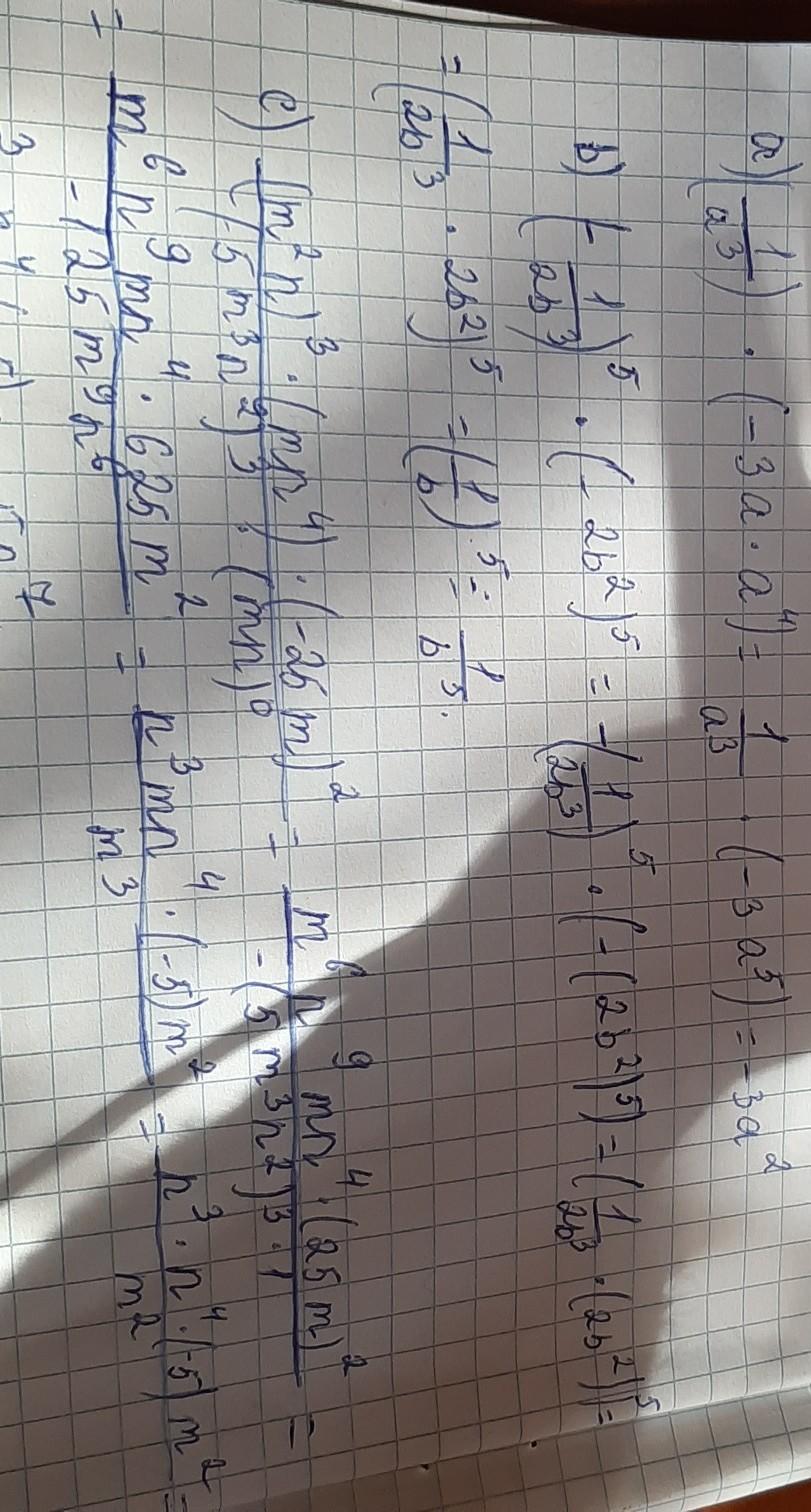 a) (1/a³) · (-3a · a⁴) = 1/a³ · (-3a⁵) = -3a²
b) (-1/2b³)⁵ · (-2b²)⁵ = -(1/2b³)⁵ · (-(2b²)⁵) = (1/2b³ · (2b²))⁵ =
= (1/2b³ · 2b²)⁵ = (1/b)⁵ = 1/b⁵.
c) (m²n)³ · (mn⁴) · (-25m)² / (-5m³n²)³ · (mn)⁰ = m⁶n⁹mn⁴ · (25m)² / -(5m³n²)³ · 1 =
= m⁶n⁹mn⁴ · 625m² / -125m⁹n⁶ = n³mn⁴ · (-5)m² / m³ = n³ · n⁴ · (-5)m² / m² =